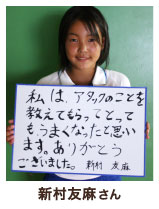 私は、アタックのことを
教えてもらってとって
もうまくなったと思い
ます。ありがとう
ございました。 新村 友麻
新村友麻さん